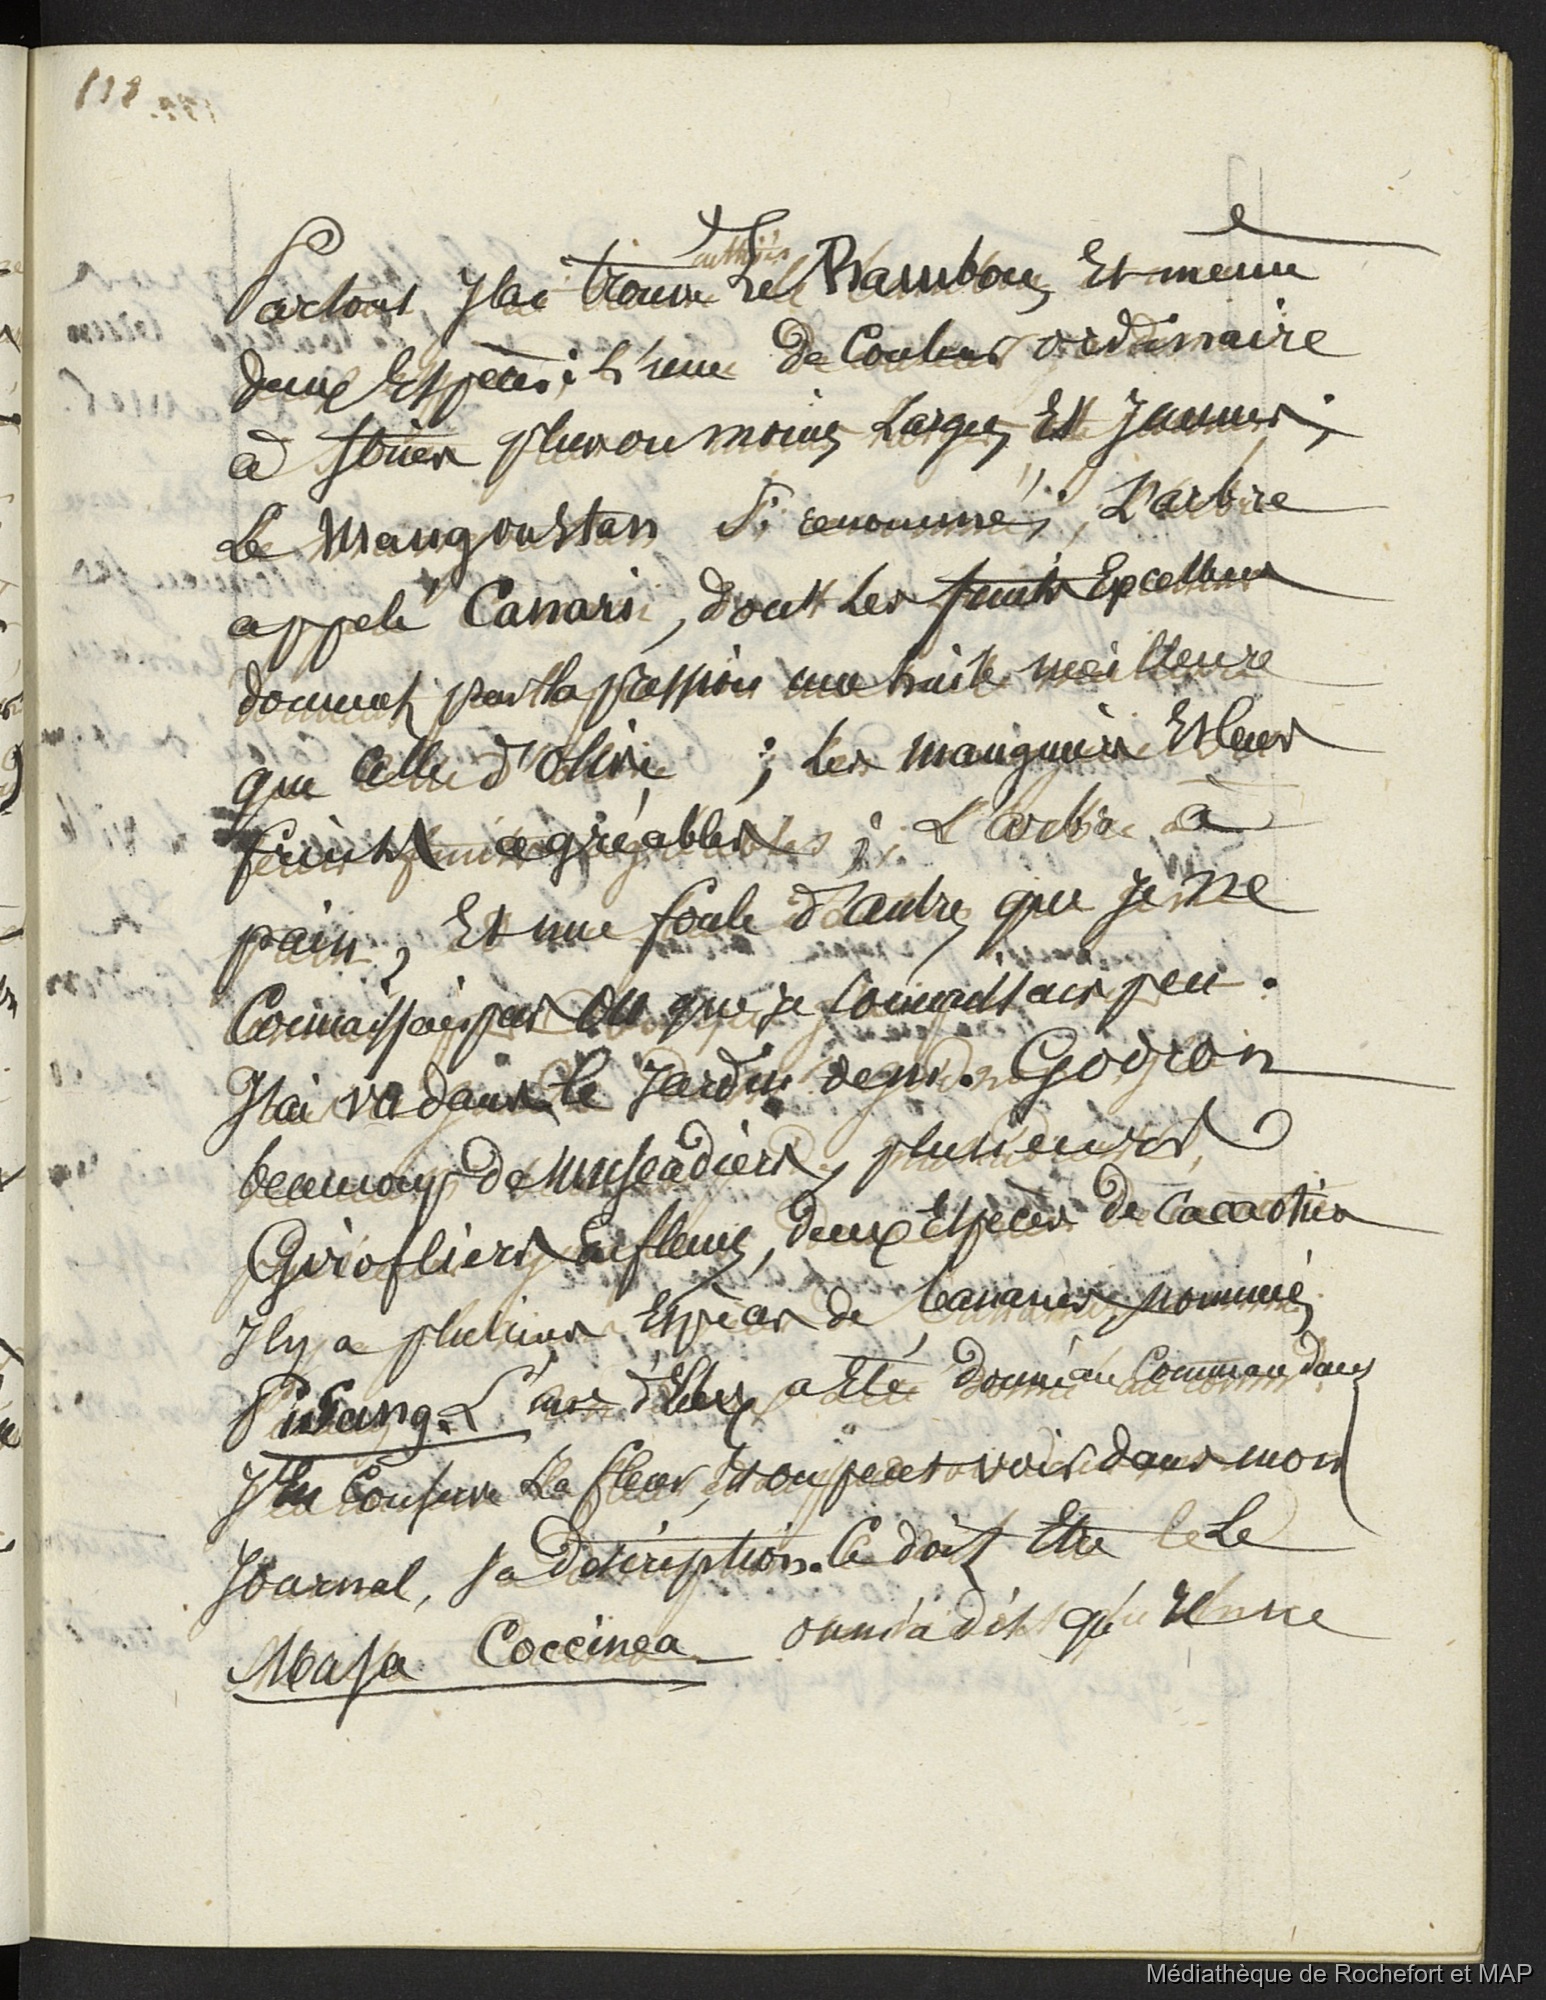 118
Partout J'lai trouvé Le Bambou, Et même
deux Espèces ; L'une de Couleur ordinaire
à stries plus ou moins Larges, Et Jaunes ;
Le Mangoustan si renommé ; L'arbre
appelé Canari, dont Les fruits Excellens
donnent par la pression une huile meilleure
que Celle d'olive ; Les manguiers Et leurs
fruits agréables ; L'arbre à
pain, Et une foule d'autres que Je ne
Connaissais pas ou que je connaissais peu.
J'ai vu dans Le Jardin de M. Godron
beaucoup de muscadiers, plusieurs
Girofliers En fleurs, deux Espèces de Cacaotier
Il y a plusieurs Espèces de bananiers, nommés
Pisang. L'un d'Eux a Eté donné au Commandant
J'En Conserve La fleur, Et on peut voir dans mon
Journal, sa description. Ce doit Etre Le
Musa Coccinea_ on m'a dit qu'Il ne
Médiathèque de Rochefort et MAP